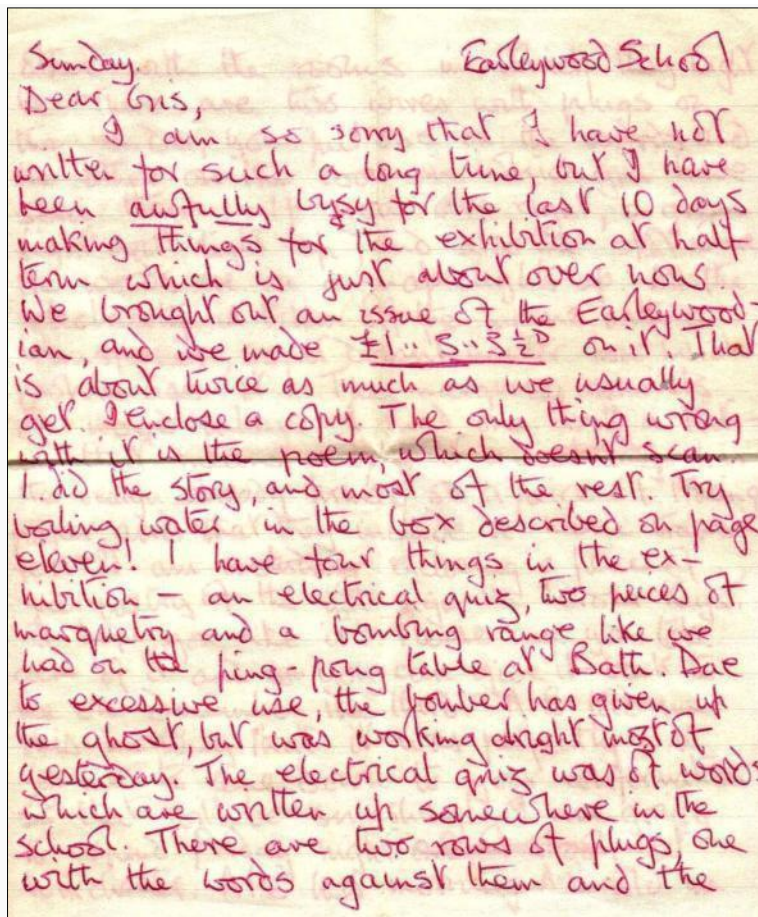 Sunday. Earleywood School
Dear Gris,
I am so sorry that I have not
written for such a long time, but I have
been awfully busy for the last 10 days
making things for the exhibition at half
term which is just about over now.
We brought out an issue of the Earleywood-
ian, and we made £1..5..3½D on it. That
is about twice as much as we usually
get. I enclose a copy. The only thing wrong
with it is the poem, which doesnt scan.
I did the story, and most of the rest. Try
boiling water in the box described on page
eleven! I have four things in the ex-
hibition - an electrical quiz, two peices of
marquetry and a bombing range like we
had on the ping-pong table at Bath. Due
to excessive use, the bomber has given up
the ghost, but was working alright most of
yesterday. The electrical quiz was of words
which are written up somewhere in the
school. There are two rows of plugs one
with the words against them and the